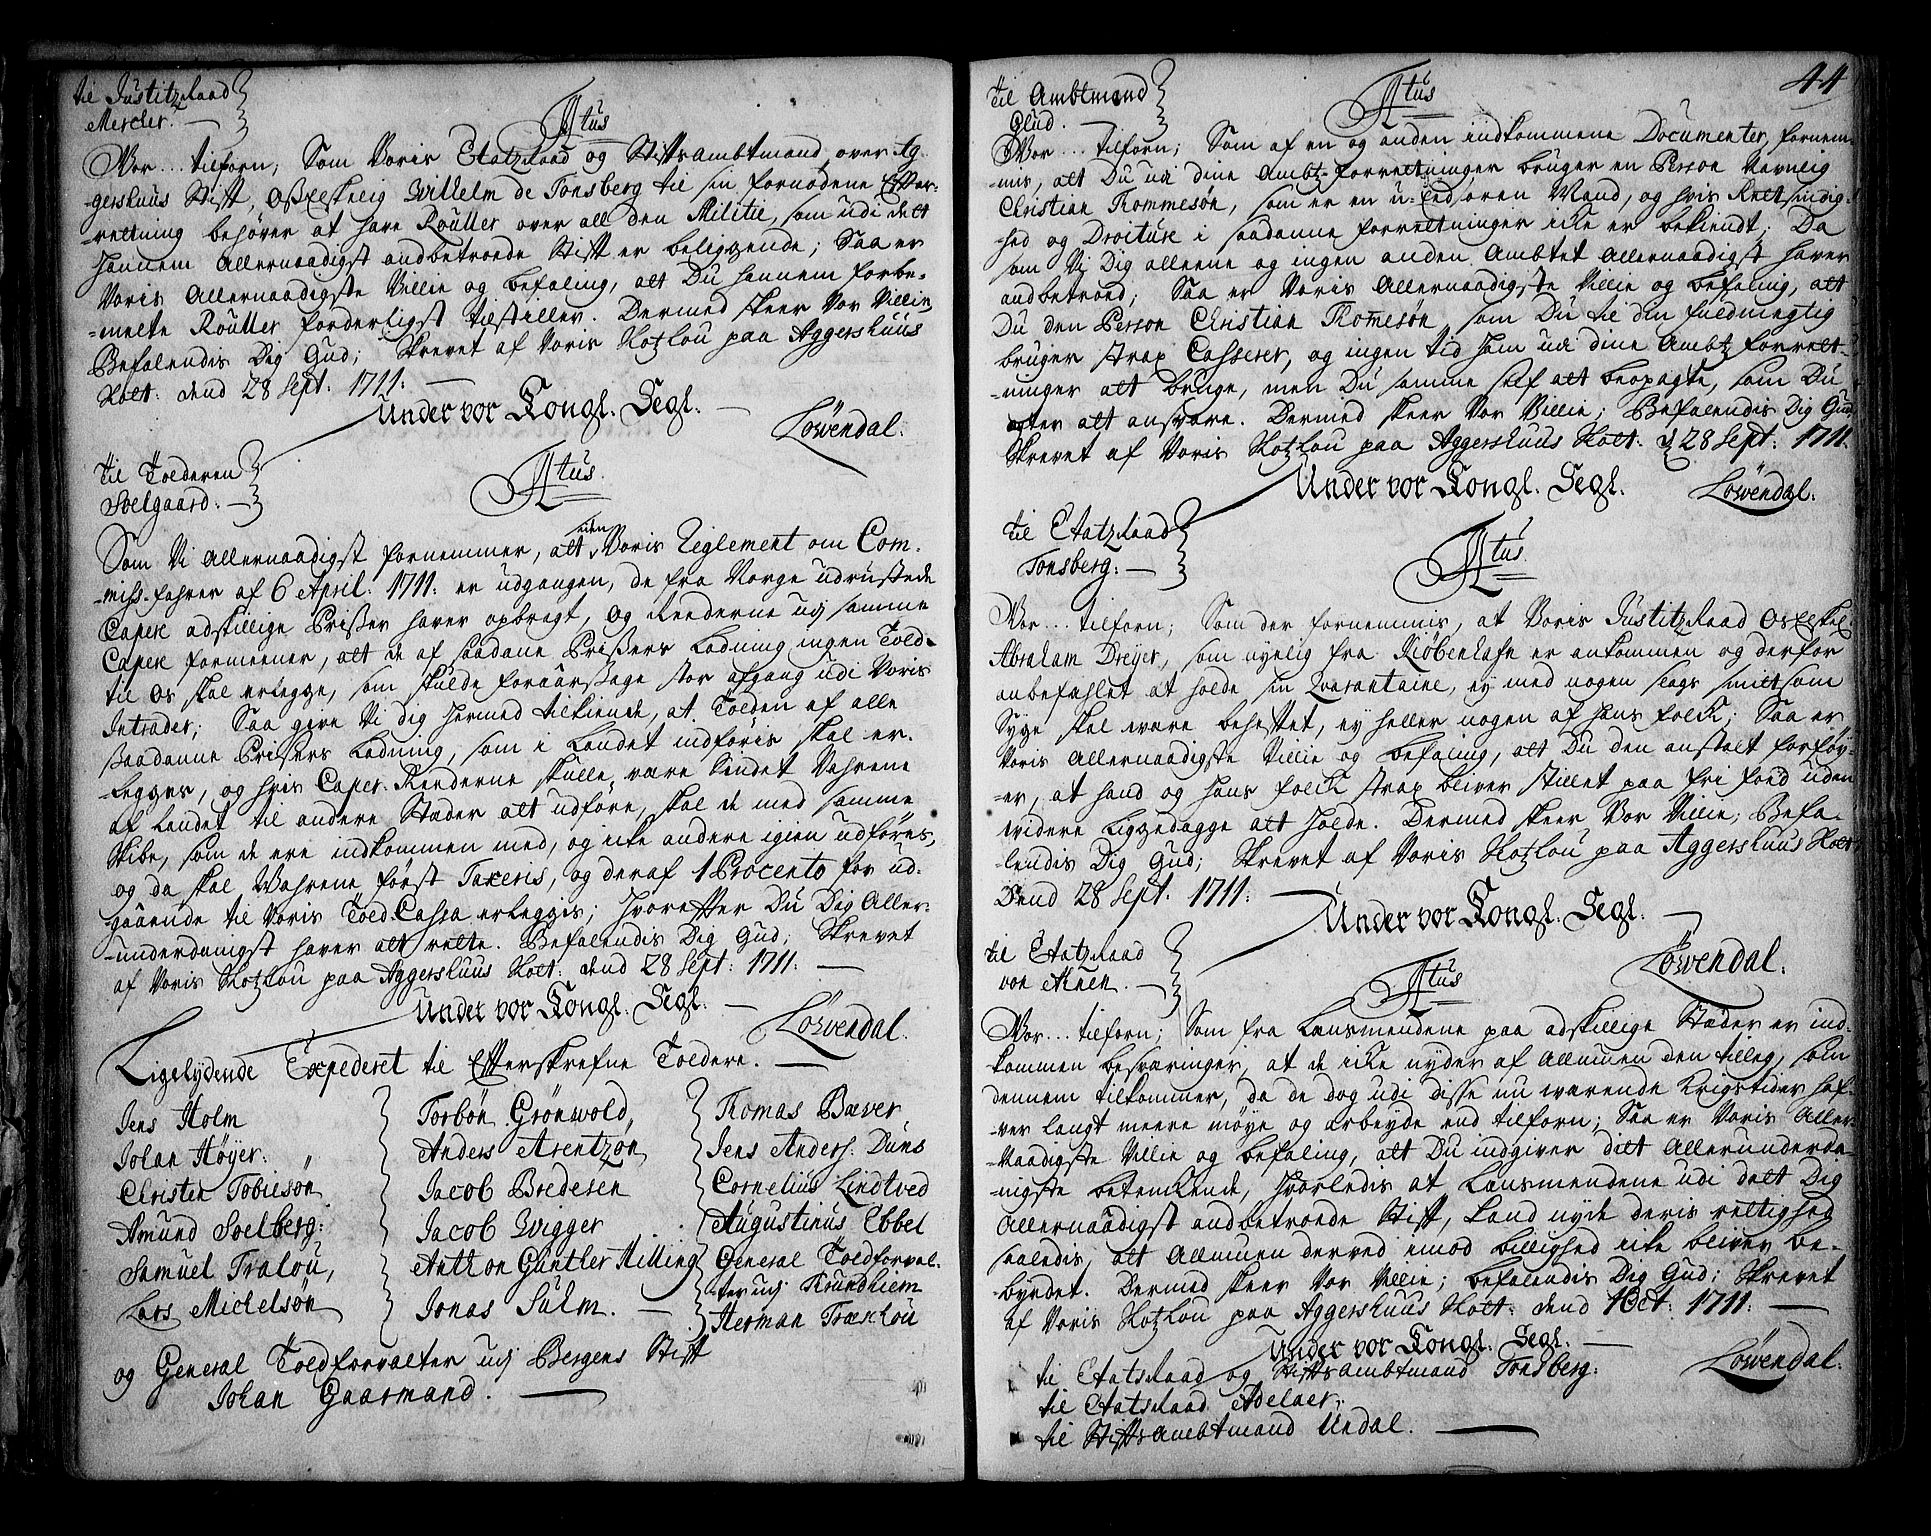 til Justitzraad
Mercker.
Atus
Vor... tilforn; Som Voris Etatzraad og Stiftsambtmand, over Ag-
-gershuus Stift, Osz Elskelig Wilhelm de Tonsberg til sin fornødene Effter-
-rettning behøver at have Rouller over all den Militie, som udi det
hannem Allernaadigst anbetroede Stift er beliggende; Saa er
Voris Allernaadigste Villie og befaling, att Du hannem forbe-
-melte Rouller forderligst tilstiller. Dermed skeer Vor Villie,
Befalendis Dig Gud; Skrevet af Voris Slotzlou paa Aggershuus
Slott. dend 28 Sept: 1711.
Under vor Kongl. Segl.
Løwendal.
til Tolderen
Soelgaard.
Atus.
Som Vi Allernaadigst fornemmer, att siden Voris Reglement om Com-
-miss-fahrer af 6 April. 1711. er udgangen, de fra Norge udrustede
Capere adskillige Prisser haver opbragt, og Reederne udj samme
Capere formeener, att de af saadane Prisers Ladning ingen Told
til Os skal erlegge, som skulde foraarsage stor afgang udi Voris
Intrader; Saa give Vi dig hermed tilkiende, at Tolden af alle
saadanne Prisers Ladning, som i Landet indføris, skal er-
-legges, og hvis Caper-Reederne skulle være sindet Vahrene
af Landet til andere Stæder att udføre, skal de med samme
Skibe, som de ere indkommen med, og icke andere igien udføres,
og da skal Wahrene først Taxeris, og deraf 1 Procento for ud-
gaaende til Voris Told-Cassa erleggis; hvoreffter Du Dig Aller-
-underdanigst haver att rette. Befalendis Dig Gud; Skrevet
af Voris Slotzlou paa Aggershuus Slott. dend 28 Sept: 1711.
Under vor Kongl. Segl.
Løwendal.
Ligelydende Expederet til Effterskrefne Toldere.
Jens Holm
Johan Høyer.
Christen Tobieson
Amund Soelberg:
Samuel Tralou,
Lars Michelsøn
Torbøn Grønwold,
Anders Arentzon
Jacob Bredesen
Jacob Wigger
Anthon Günther Hilling
Jonas Sulm.
Thomas Bæver
Jens Anders. Duns
Cornelius Lindtved
Augustinus Ebbel
General Toldforval-
-ter udj Trundhiem
Herman Træschou
og General Toldforvalter udj Bergens Stift
Johan Gaarmand.
44
til Ambtmand
Glud.
Atus
Vor... tilforn; Som af en og anden indkommene Documenter, fornem-
-mis, att Du udi dine Ambtz-forretninger bruger en Person Navnlig
Christian Thommesøn, som er en u-Eedsoren Mand, og hvis Retsindig-
-hed og Droiture i saadanne forretninger icke er bekiendt; Da
som Vi Dig alleene og ingen anden Ambtet Allernaadigst haver
anbetroed; Saa er Voris Allernaadigste Villie og befaling, att
Du den Person Christian Thomesøn som Du til din fuldmegtig
bruger strax Casserer, og ingen tid ham udi dine Ambtz forret-
-ninger att bruge, men Du samme self att beopagte, som Du
agter att ansvare. Dermed skeer Vor Villie; Befalendis Dig Gud
Skrevet af Voris Slotzlou paa Aggershuus Slott. d 28 Sept: 1711.
Under vor Kongl. Segl.
Løwendal.
til Etatzraad
Tonsberg:
Atus
Vor... tilforn; Som der fornemmis, at Voris Justitzraad Osz Elskel:
Abraham Dreÿer, som nyelig fra Kiøbenhafn er ankommen og derfor
anbefahlet at holde sin Qvarantaine, ey med nogen slags smitsom
Syge skal være behefftet, ey heller nogen af hans folck; Saa er
Voris Allernaadigste Villie og befaling, att Du den anstalt forføy-
-er, at hand og hans folck strax bliver stillet paa fri foed uden
videre Liggedagge att holde. Dermed skeer Vor Villie; Befa-
-lendis Dig Gud; Skrevet af Voris Slotzlou paa Aggershuus Slott
Dend 28 Sept. 1711.
Under vor Kongl. Segl.
Løwendal.
til Etatzraad
von Ahnen.
Atus
Vor... tilforn; Som fra Lansmendene paa adskillige Stæder er ind-
kommen besværinger, at de icke nyder af Allmuen den tilleg, som
dennem tilkommer, da de dog udi disse nu warende Krigstider haf-
-ver langt meere møye og arbeyde end tilforn; Saa er Voris Aller-
-Naadigste Villie og befaling, att Du indgiver ditt Allerunderda-
-nigste betenkende, hvorledis at Lansmendene udi dett Dig
Allernaadigst andbetroede Stift, kand nyde deris rettighed
saaledis, att Allmuen derved imod billighed icke bliver be-
-byrdet. Dermed skeer Vor Villie; befalendis Dig Gud; Skrevet
af Voris Slotzlou paa Aggershuus Slott. dend 1 Oct: 1711.
Under vor Kongl. Segl.
Løwendal.
til Etatsraad og Stiftsambtmand Tonsberg:
til Etatsraad Adelaer.
til Stiftsambtmand Undal.